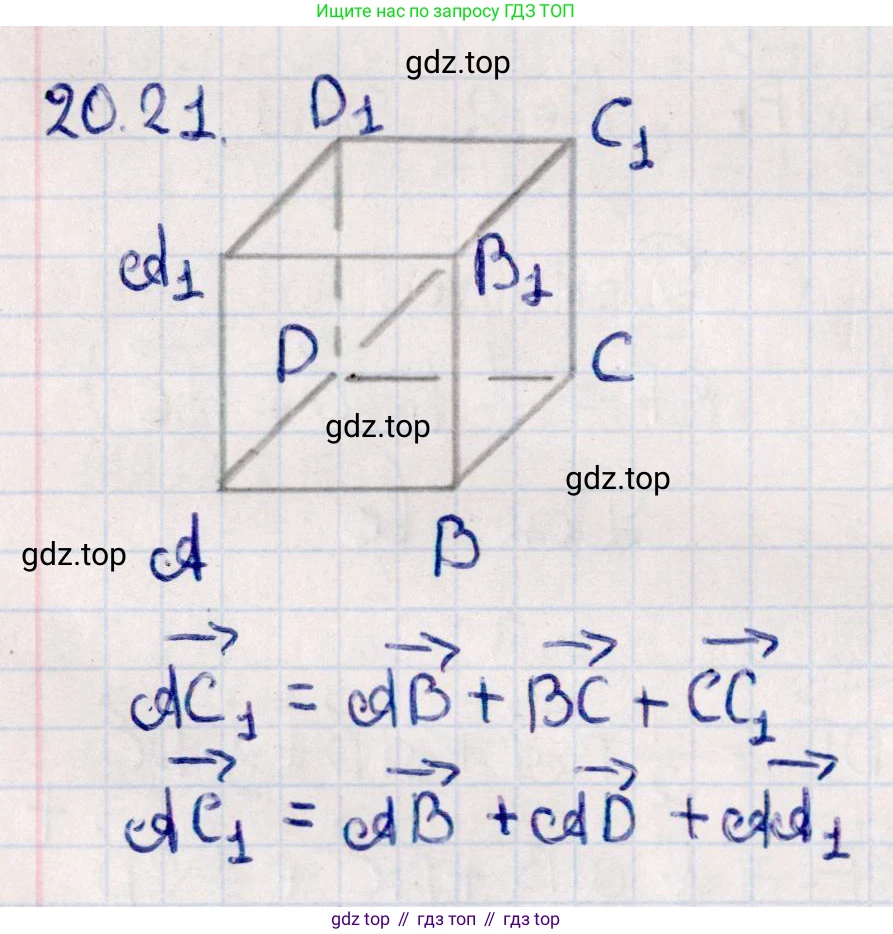 Ищите нас по запросу ГДЗ ТОП
gdz.top
20.21.
D₁
C₁
A₁
B₁
D
C
gdz.top
gdz.top
gdz.top
A
B
AC₁ = AB + BC + CC₁
AC₁ = AB + AD + AA₁
gdz top // гдз топ // гдз top